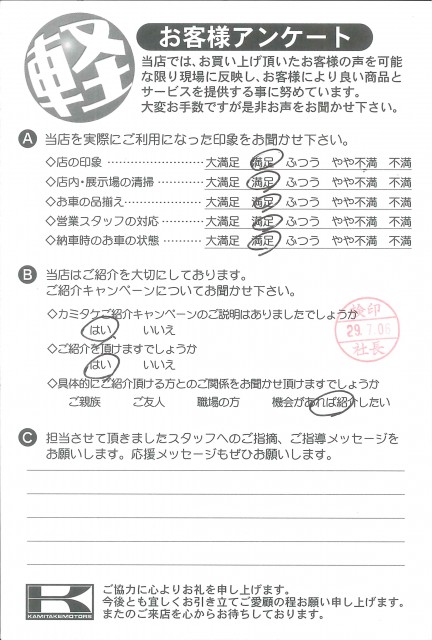 軽
お客様アンケート
当店では、お買い上げ頂いたお客様の声を可能
な限り現場に反映し、お客様により良い商品と
サービスを提供する事に努めています。
大変お手数ですが是非お声をお聞かせ下さい。
A 当店を実際にご利用になった印象をお聞かせ下さい。
◇店の印象 ………………… 大満足 満足 ふつう やや不満 不満
◇店内・展示場の清掃 ………… 大満足 満足 ふつう やや不満 不満
◇お車の品揃え ……………… 大満足 満足 ふつう やや不満 不満
◇営業スタッフの対応 ………… 大満足 満足 ふつう やや不満 不満
◇納車時のお車の状態 ………… 大満足 満足 ふつう やや不満 不満
B 当店はご紹介を大切にしております。
ご紹介キャンペーンについてお聞かせ下さい。
◇カミタケご紹介キャンペーンのご説明はありましたでしょうか
はい いいえ
検印
29.7.06
社長
◇ご紹介を頂けますでしょうか
はい いいえ
◇具体的にご紹介頂ける方とのご関係をお聞かせ頂けますでしょうか
ご親族 ご友人 職場の方 機会があれば紹介したい
C 担当させて頂きましたスタッフへのご指摘、ご指導メッセージを
お願いします。応援メッセージもぜひお願いします。
KAMITAKEMOTORS
ご協力に心よりお礼を申し上げます。
今後とも宜しくお引き立てご愛顧の程お願い申し上げます。
またのご来店を心からお待ちしております。